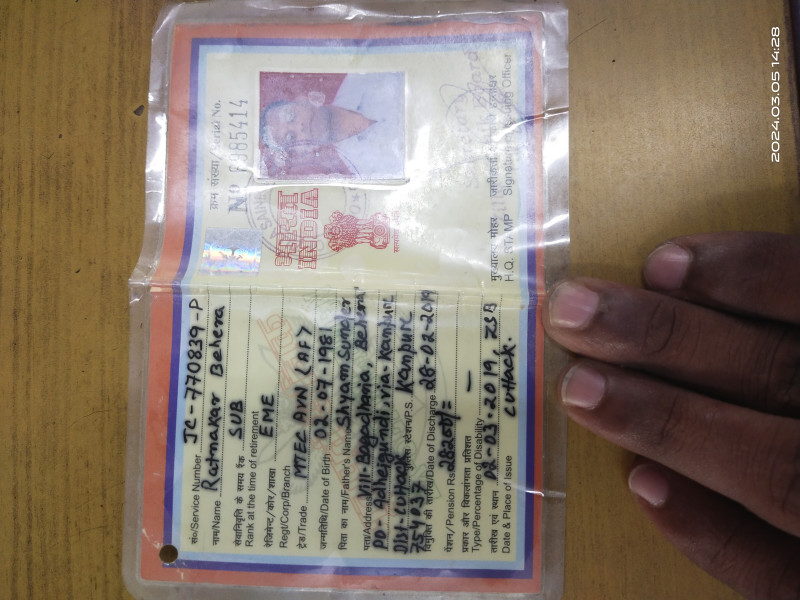 सं०/Service Number JC-770839-P
नाम/Name Ratnakar Behera
सेवानिवृत्ति के समय रैंक SUB
Rank at the time of retirement
रेजिमेन्ट/कोर/शाखा EME
Regt/Corp/Branch
ट्रेड/Trade MTEC AVN (AF)
जन्मतिथि/Date of Birth 02-07-1981
पिता का नाम/Father's Name Shyam Sunder Behera
पता/Address Vill-Bagadharia,
PO- via- Kanpur
Dist- Cuttack पुलिस स्टेशन/P.S. Kanpur
754037
विमुक्ति की तारीख/Date of Discharge 28-02-2019
पेंशन/Pension Rs
प्रकार और विकलांगता प्रतिशत —
Type/Percentage of Disability
तारीख एवं स्थान 02-03-2019, ZSB
Date & Place of Issue Cuttack.
क्रम संख्या/Serial No.
No 0985414
भारत
INDIA
मुख्यालय मोहर
H.Q. STAMP
जारीकर्ता
Signature of Issuing Officer
2024.03.05 14:28